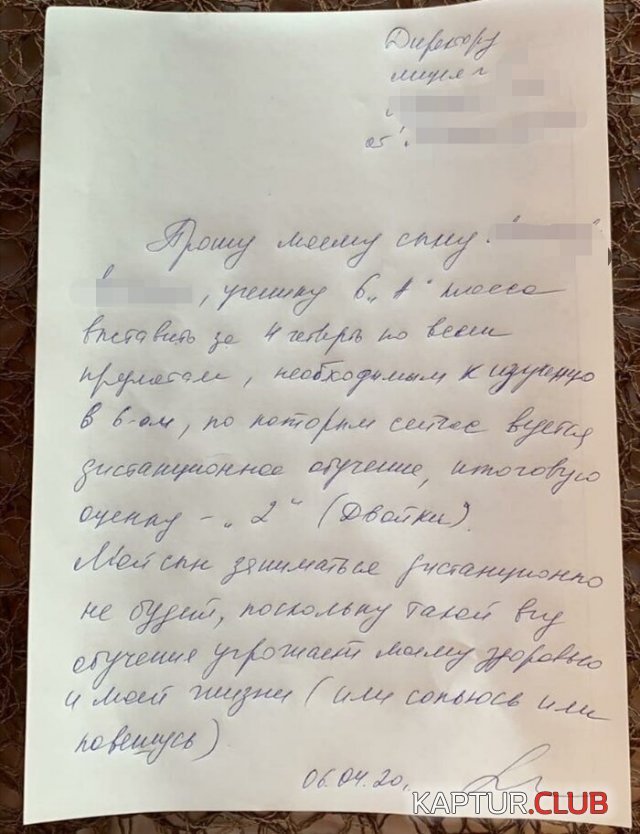 Директору
лицея
от
Прошу моему сыну
, ученику 6 „А" класса
выставить за 4 четверть по всем
предметам, необходимым к изучению
в 6-ом, по которым сейчас ведется
дистанционное обучение, итоговую
оценку – „2" (Двойки).
Мой сын заниматься дистанционно
не будет, поскольку такой вид
обучения угрожает моему здоровью
и моей жизни (или сопьюсь или
повешусь)
06.04.20.
KAPTUR.CLUB